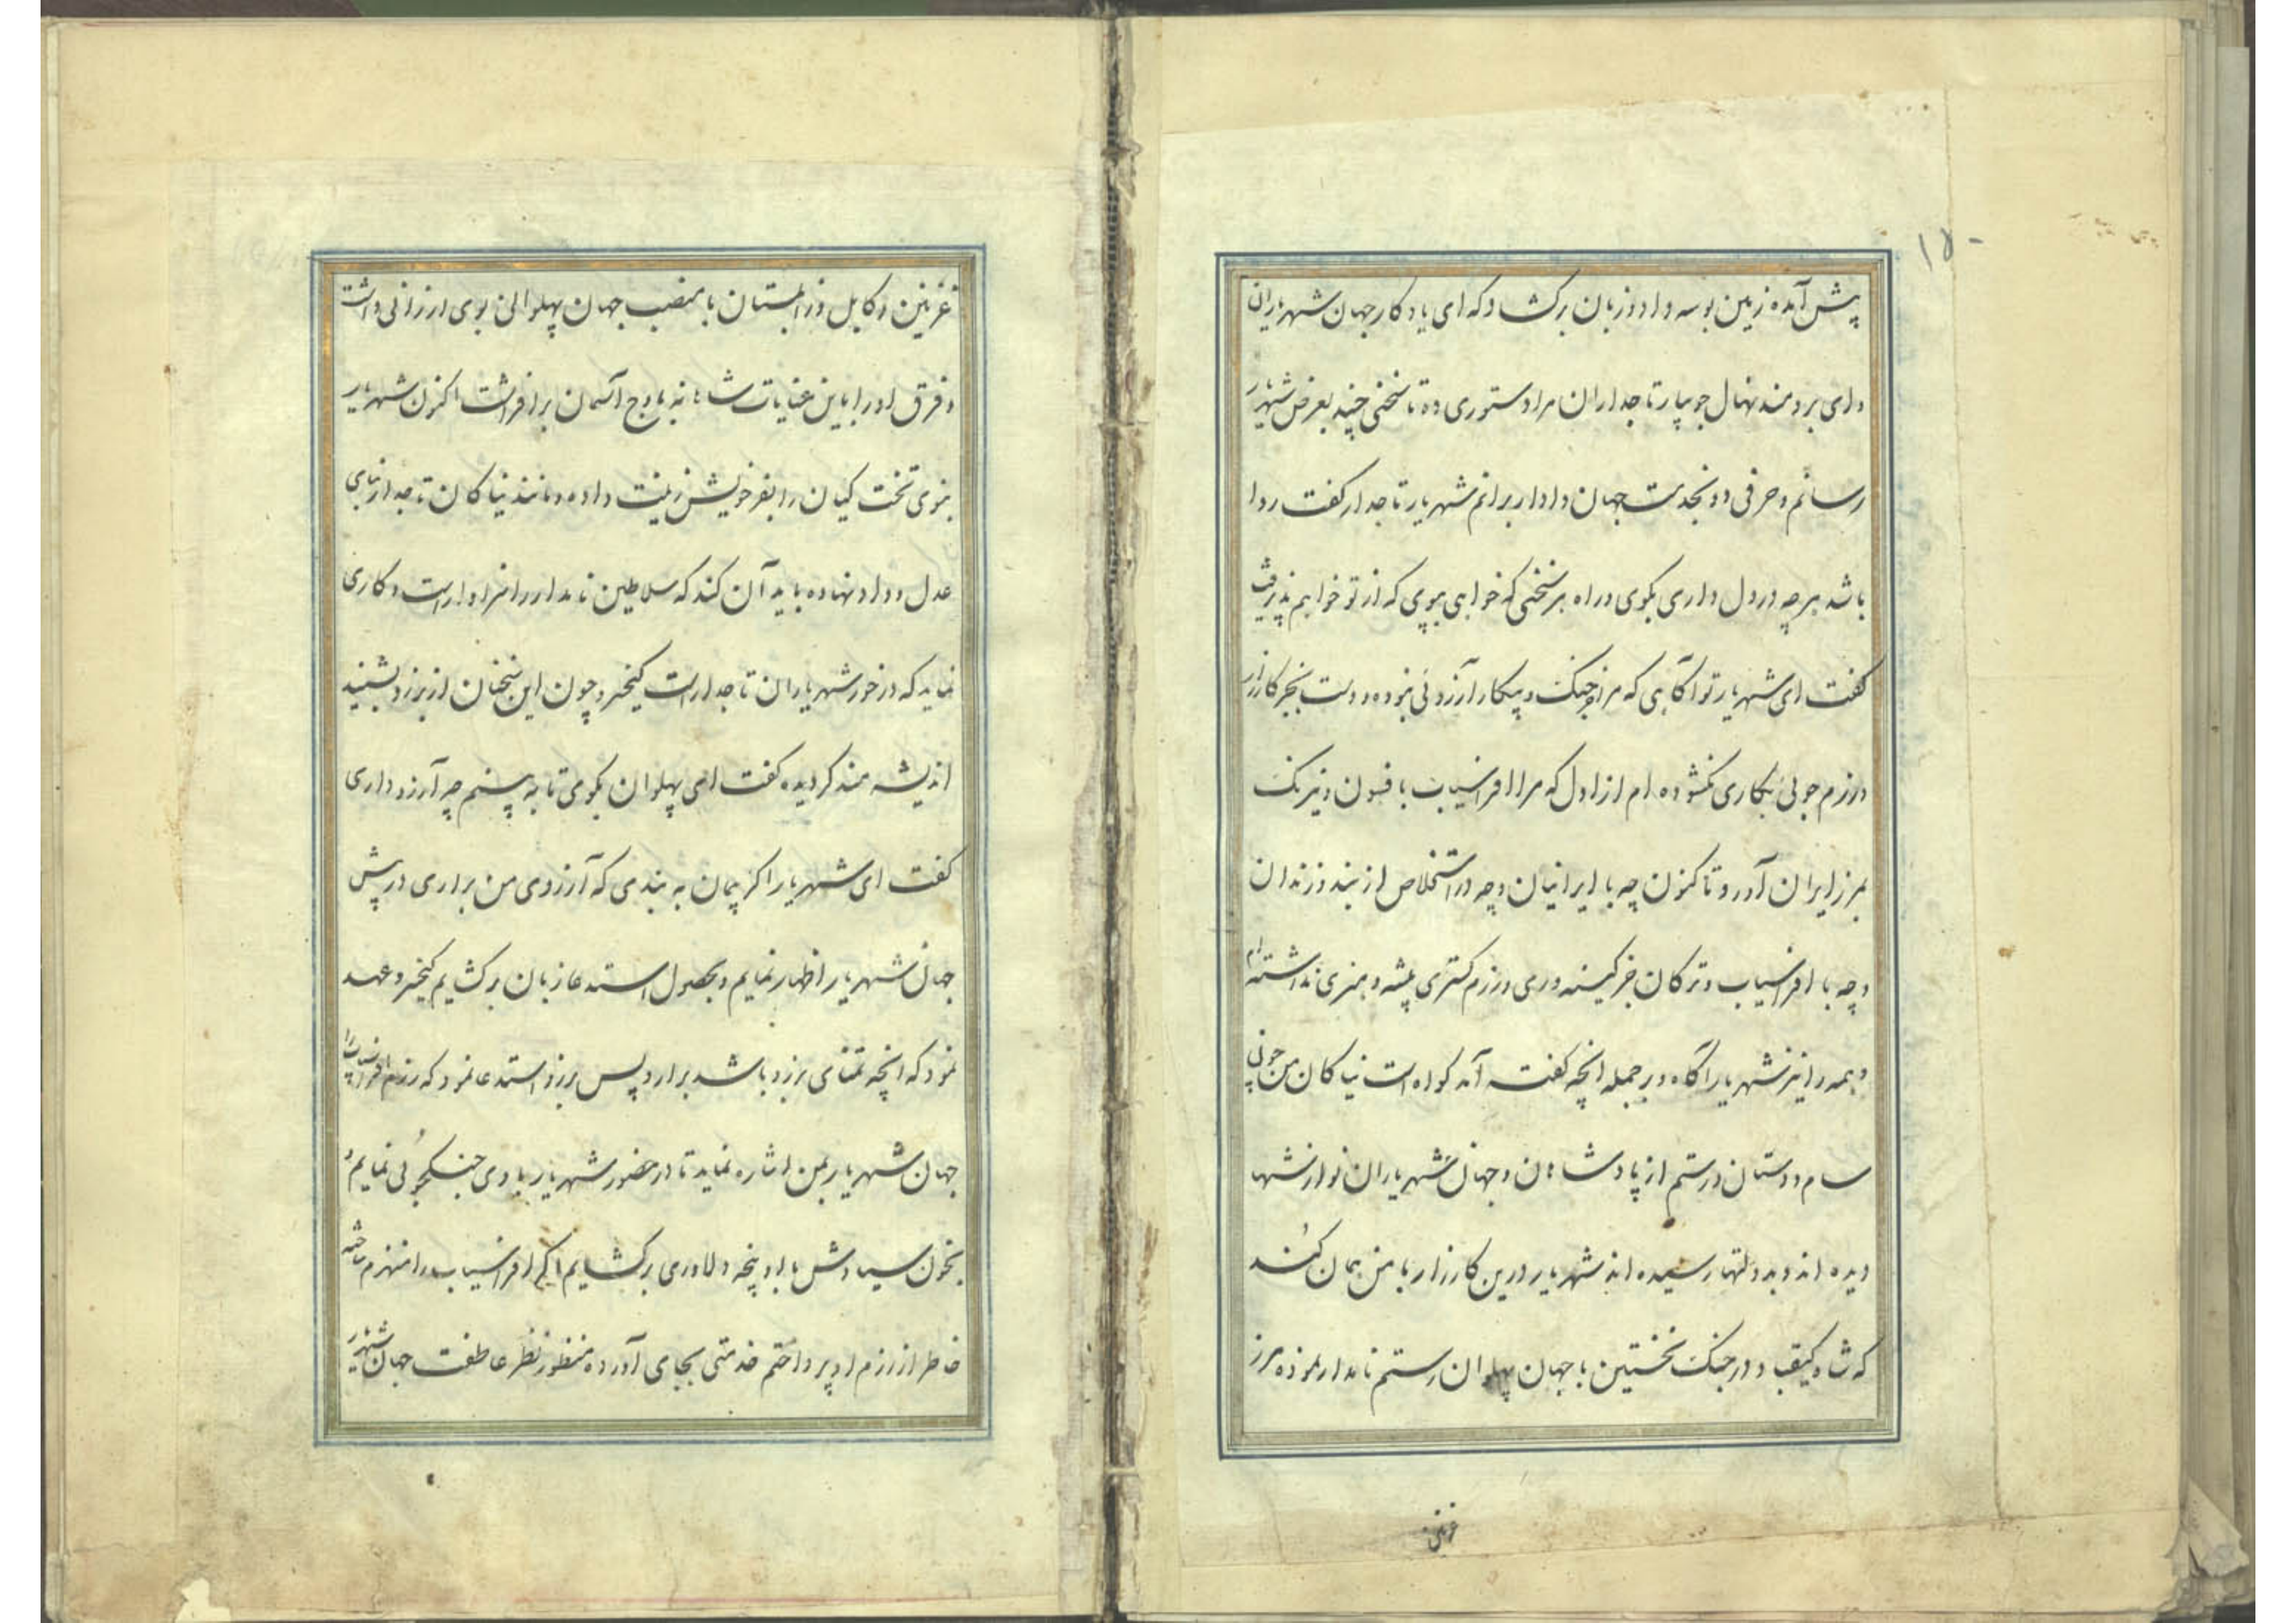 ۱۵۰
پیش آمده زمین بوسه داد و زبان برکشاد که ای یادکار جهان شهریاران
و ای برومند نهال جویبار تاجداران مرا دستوری ده تا سخنی چند بعرض شهریار
رسانم و حرفی دو بخدمت جهان دادار برانم شهریار تاجدار کفت روا
باشد هر چه در دل داری بکوی و راه هر سخنی که خواهی بپوی که از تو خواهم پذیرفت
کفت ای شهریار تو آکاهی که مرا جز جنک و پیکار آرزوئی نبوده و دست بجز کارزار
و رزم جوئی بکاری نکشوده ام از اول که مرا افراسیاب بافسون و نیرنک
بمرز ایران آورد و تا کنون چه با ایرانیان و چه در استخلاص از بند و زندان
و چه با افراسیاب و ترکان جز کینه وری و رزم کستری پیشه و هنری نداشته ام
و همه را نیز شهریار آکاه و بر جمله انچه کفته آمد کواه است نیاکان من چون
سام و دستان و رستم از پادشاهان و جهان شهریاران نوازشها
دیده اند و بدولتها رسیده اند شهریار درین کارزار با من همان کند
که شاه کیقباد در جنک نخستین با جهان پهلوان رستم نامدار نموده مرز
غزنین
غزنین و کابل و زابلستان با منصب جهان پهلوانی بوی ارزانی داشت
و فرق او را باین عنایات شاهانه باوج آسمان برافراشت اکنون شهریار
بنوی تخت کیان را بفر خویش زینت داده و مانند نیاکان تاجدار بنای
عدل و داد نهاده باید آن کند که سلاطین نامدار را سزاوار است و کاری
نماید که در خور شهریاران تاجدار است کیخسرو چون این سخنان از برزو بشنید
اندیشه مند کردیده کفت ای پهلوان بکوی تا به بینم چه آرزو داری
کفت ای شهریار اکر پیمان به بندی که آرزوی من براری در پیش
جهان شهریار اظهار نمایم و بحصول استدعا زبان برکشایم کیخسرو عهد
نمود که انچه تمنای برزو باشد برارد پس برزو استدعا نمود که رزم افراسیاب را
جهان شهریار بمن اشاره نماید تا در حضور شهریار با وی جنکجوئی نمایم و
بخون سیاوش با او پنجه دلاوری برکشایم اکر افراسیاب را منهزم ساخته
خاطر از رزم او پرداختم خدمتی بجای آورده منظور نظر عاطفت جهان شهریار